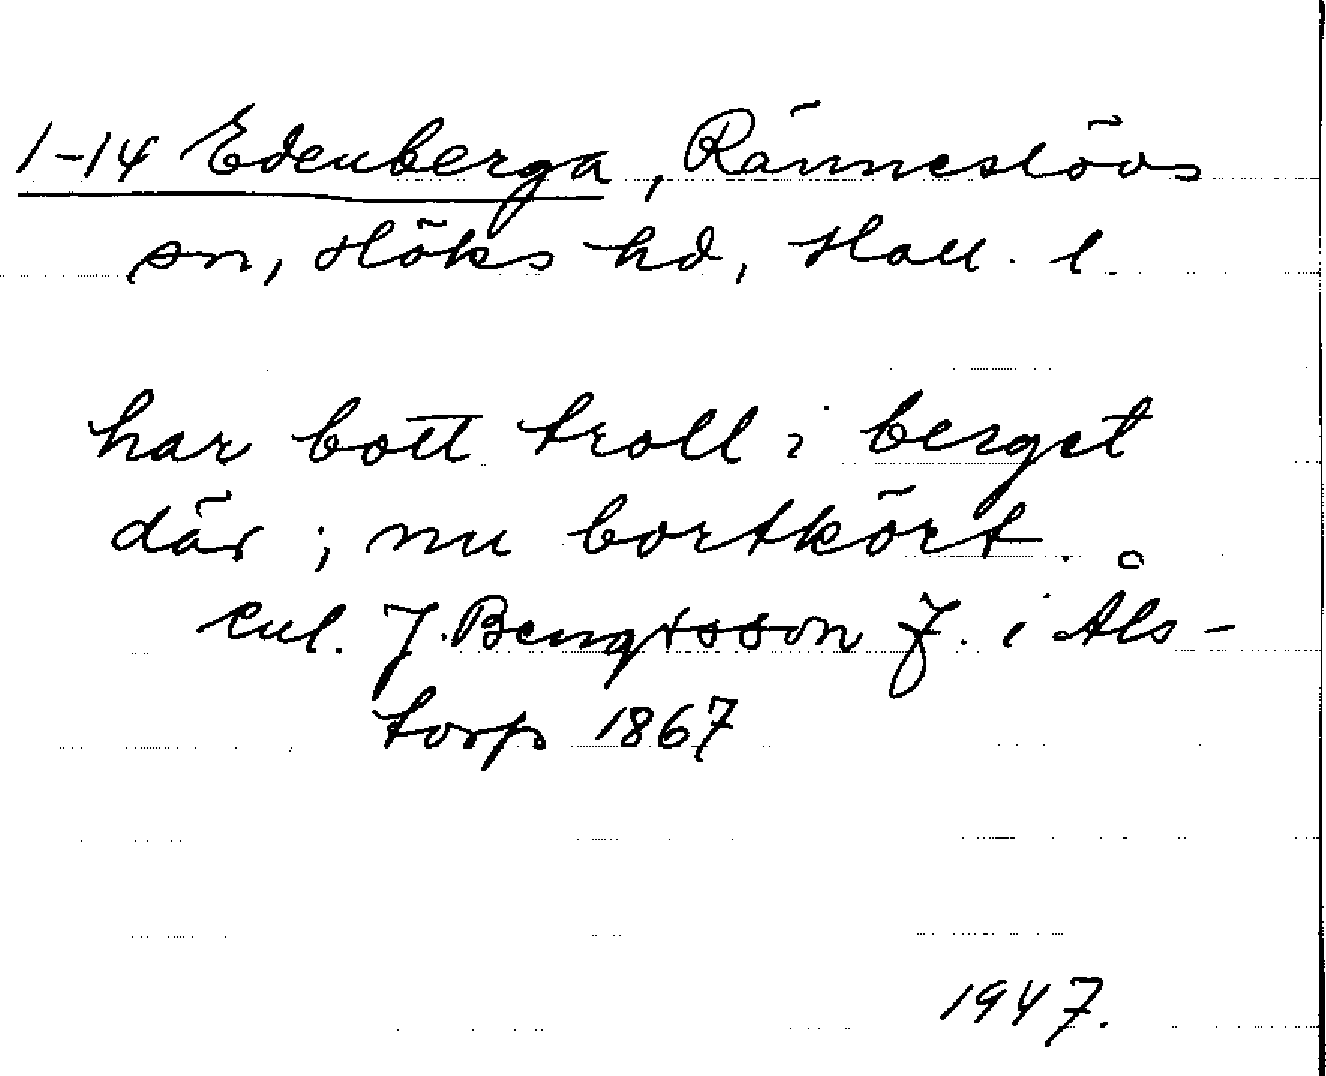 1-14 Edenberga, Ränneslövs
sn, Höks hd, Hall. l.
har bott troll i berget
där; nu bortkört.
enl. J. Bengtsson f. i Åls-
torp 1867
1947.